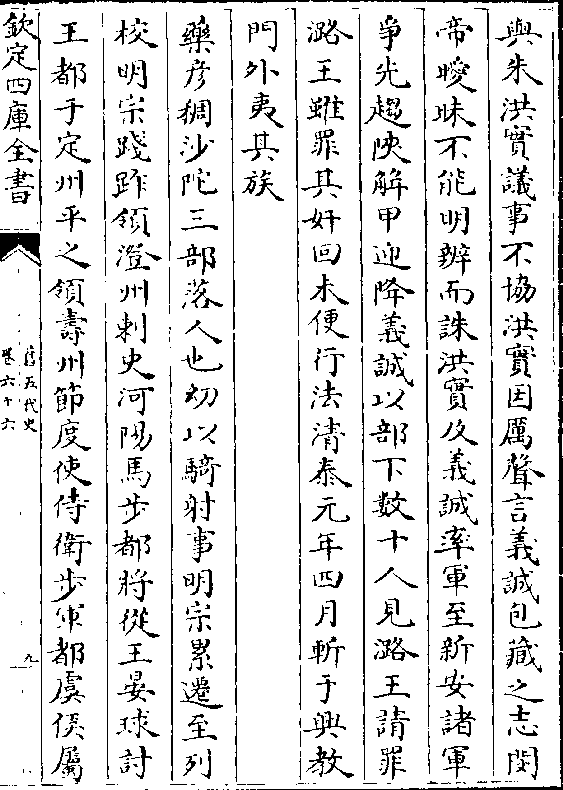 與朱洪實議事不協洪實因厲聲言義誠包藏之志閔
帝曖昧不能明辨而誅洪實及義誠率軍至新安諸軍
爭先趨陜解甲迎降義誠以部下數十人見潞王請罪
潞王雖罪其奸回未便行法清泰元年四月斬于興教
門外夷其族
藥彦稠沙陀三部落人也初以騎射事明宗累遷至列
校明宗踐阼領澄州刺史河陽馬步都將從王晏球討
王都于定州平之領壽州節度使侍衛步軍都虞侯屬
欽定四庫全書
舊五代史
卷六十六
九